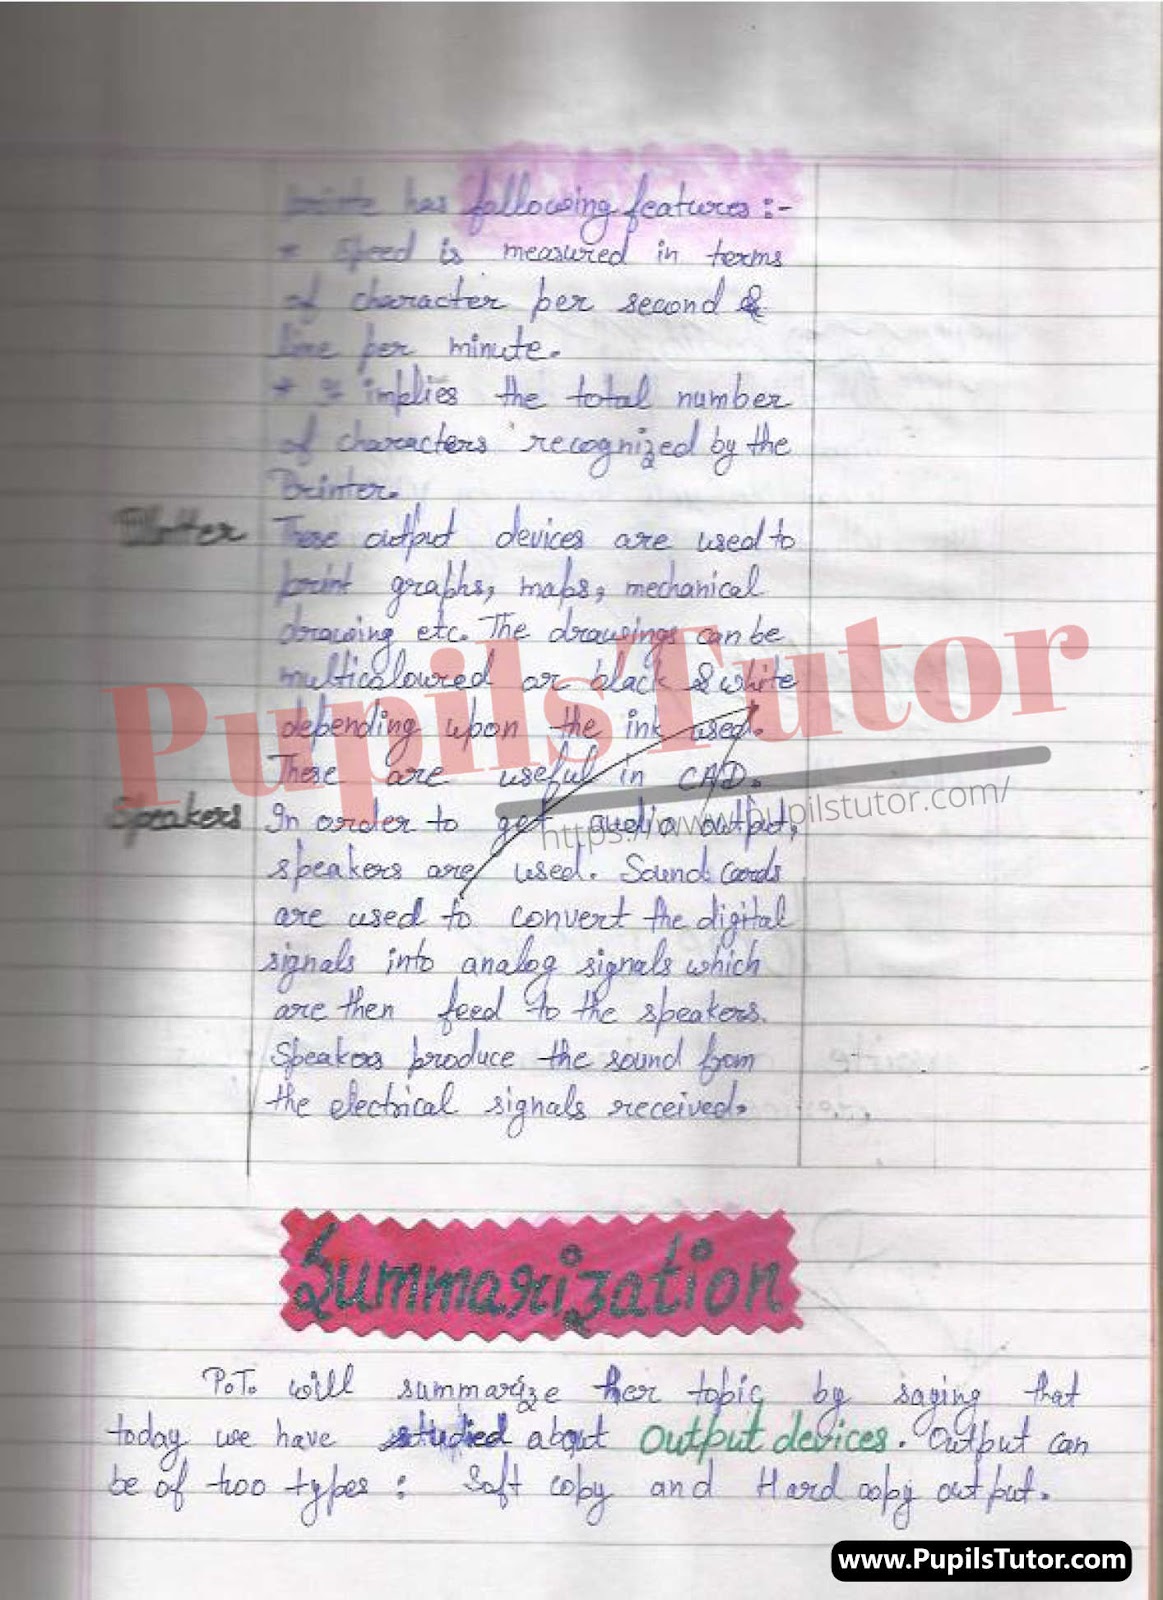 has following features :-
* Speed is measured in terms
of character per second &
line per minute.
* implies the total number
of characters recognized by the
Printer.
Plotter These output devices are used to
print graphs, maps, mechanical
drawing etc. The drawings can be
multicoloured or black & white
depending upon the ink used.
These are useful in CAD.
Speakers In order to get audio output,
speakers are used. Sound Cards
are used to convert the digital
signals into analog signals which
are then feed to the speakers.
Speakers produce the sound from
the electrical signals received.
PupilsTutor
https://www.pupilstutor.com/
Summarization
P.T. will summarize her topic by saying that
today we have studied about Output devices. Output can
be of two types : Soft copy and Hard copy output.
www.PupilsTutor.com